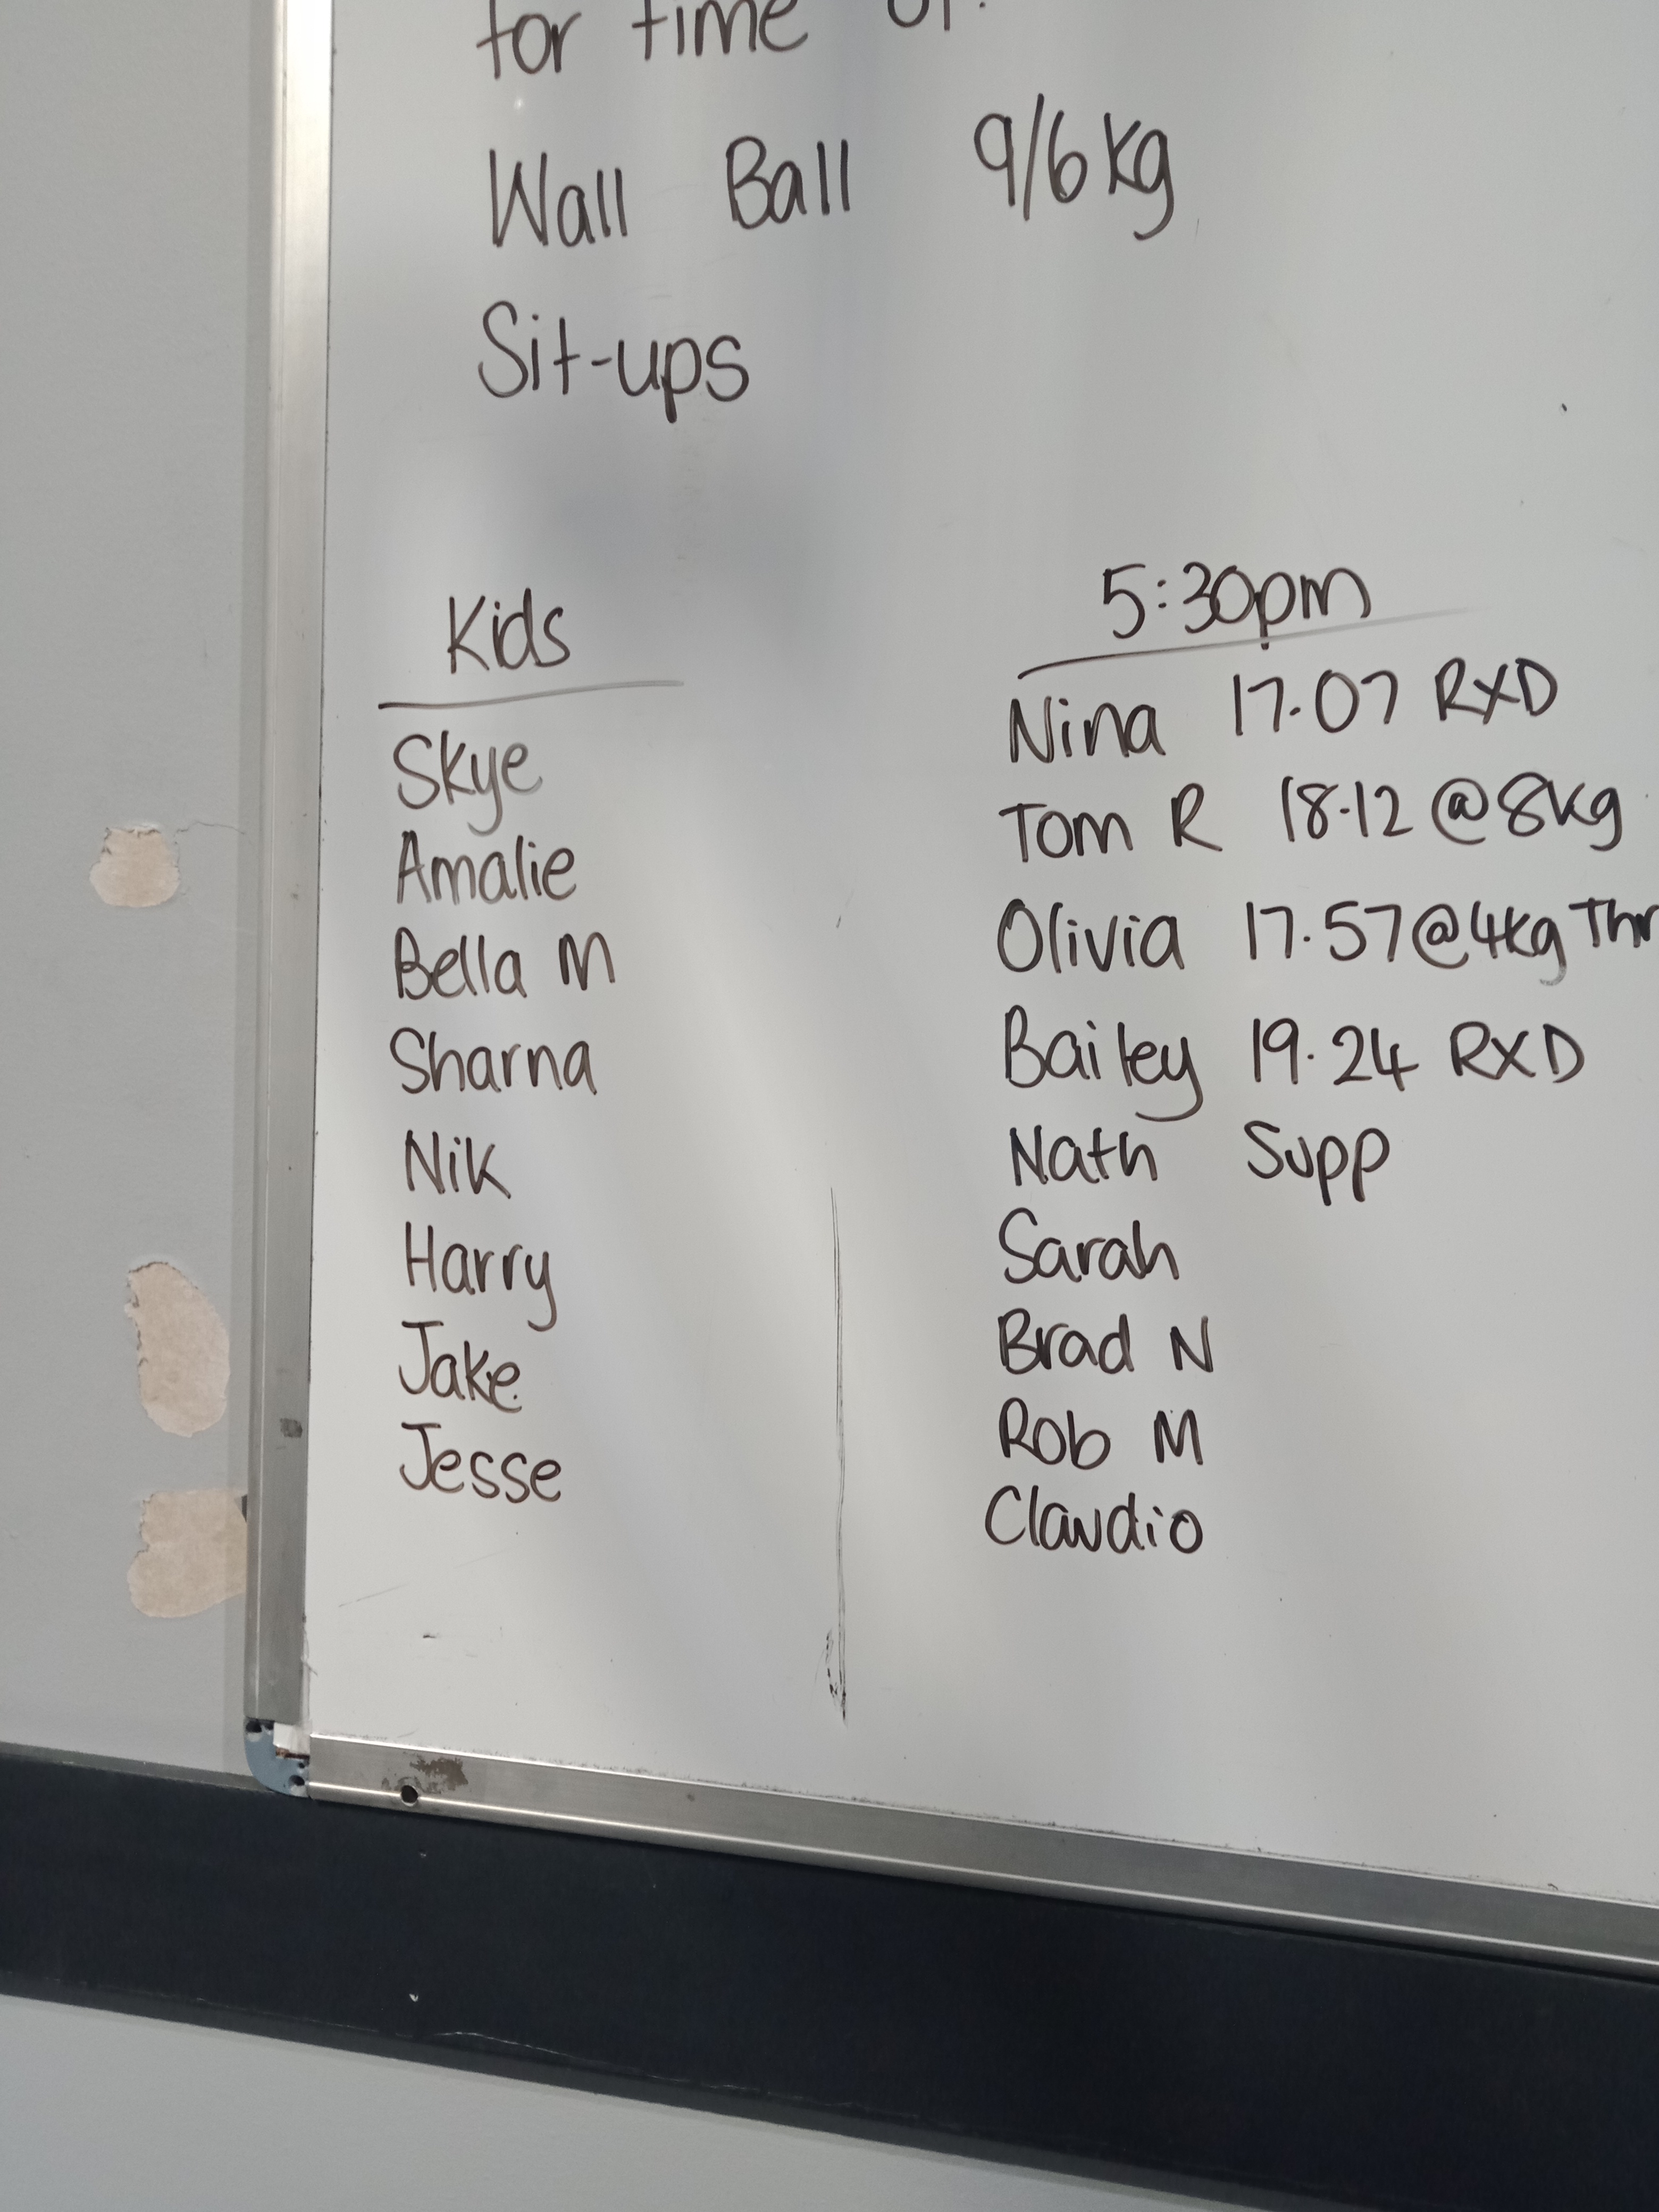 for time of:
Wall Ball 9/6kg
Sit-ups
Kids
Skye
Amalie
Bella M
Sharna
Nik
Harry
Jake
Jesse
5:30pm
Nina 17.07 RXD
Tom R 18.12 @8kg
Olivia 17.57@4kg Thr
Bailey 19.24 RXD
Nath Supp
Sarah
Brad N
Rob M
Claudio